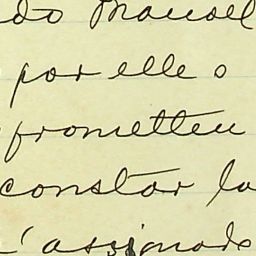 do Manoel
por elle o
prometteu
constar la
assignado